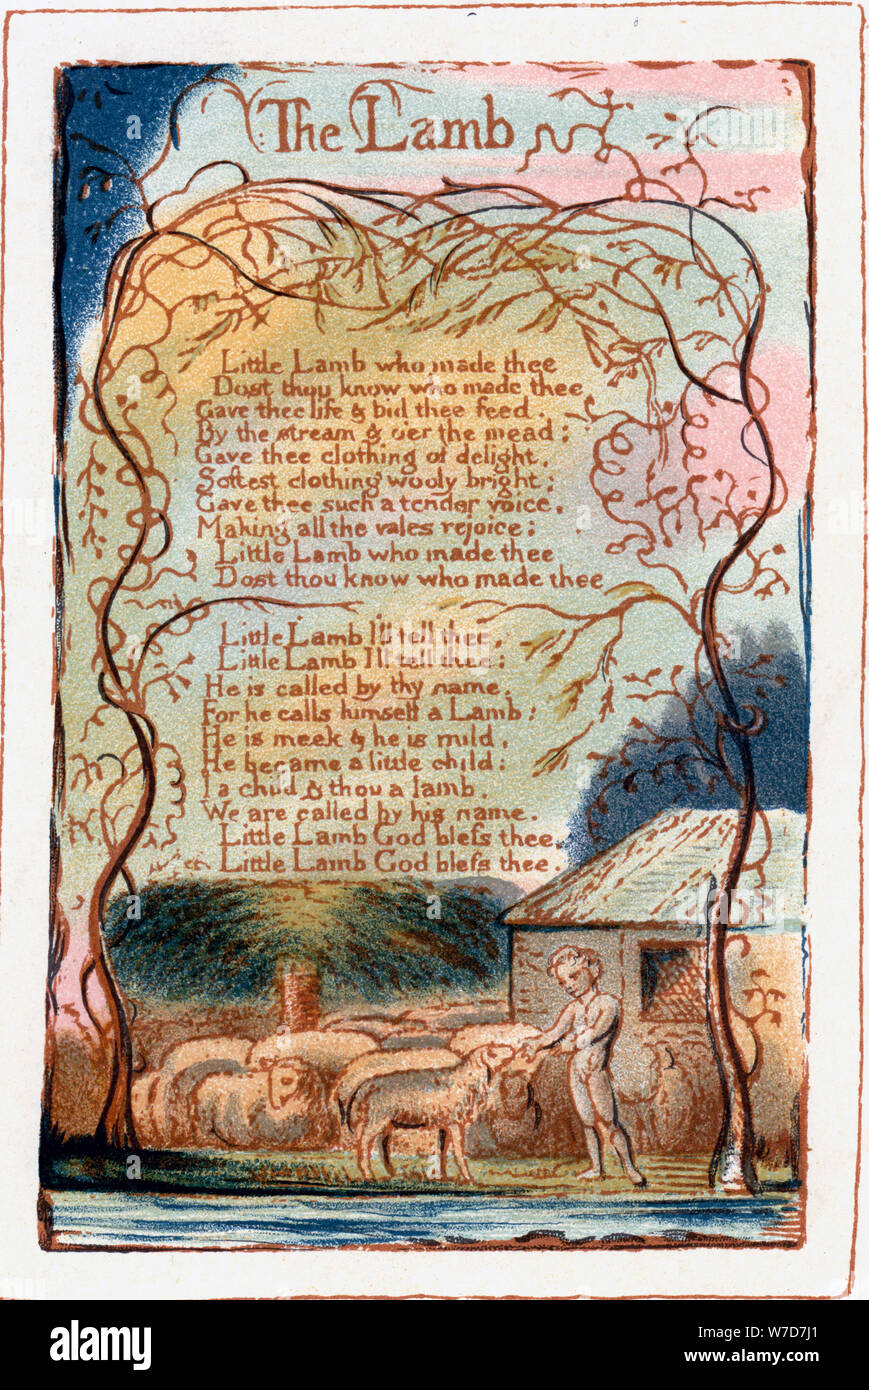 The Lamb
Little Lamb who made thee
Dost thou know who made thee
Gave thee life & bid thee feed.
By the stream & o'er the mead;
Gave thee clothing of delight,
Softest clothing wooly bright;
Gave thee such a tender voice,
Making all the vales rejoice;
Little Lamb who made thee
Dost thou know who made thee
Little Lamb I'll tell thee,
Little Lamb I'll tell thee;
He is called by thy name,
For he calls himself a Lamb:
He is meek & he is mild,
He became a little child:
I a child & thou a lamb,
We are called by his name.
Little Lamb God bleſs thee.
Little Lamb God bleſs thee.
alamy
a
alamy
a
a
alamy
W7D7J1
www.alamy.com